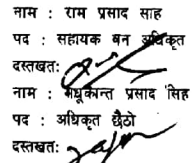 नाम : राम प्रसाद साह
पद : सहायक बन अधिकृत
दस्तखत:
नाम : मधूकान्त प्रसाद सिंह
पद : अधिकृत छैठौ
दस्तखत: